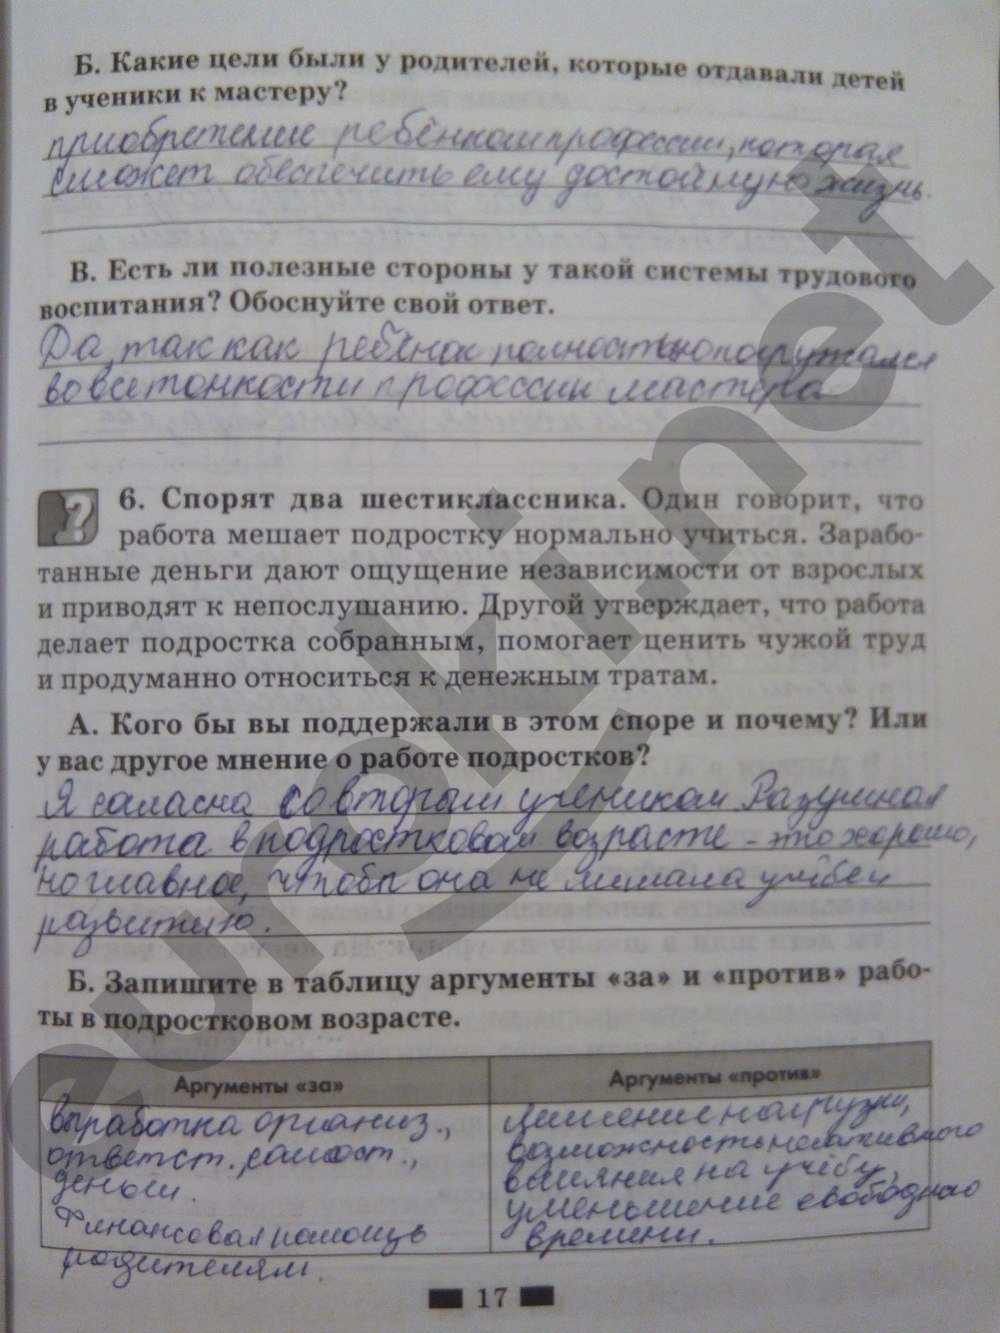 Б. Какие цели были у родителей, которые отдавали детей
в ученики к мастеру?
приобретение ребёнком профессии, которая
сможет обеспечить ему достойную жизнь.
В. Есть ли полезные стороны у такой системы трудового
воспитания? Обоснуйте свой ответ.
Да, так как ребёнок полностью погружался
во все тонкости профессии мастера
6. Спорят два шестиклассника. Один говорит, что
работа мешает подростку нормально учиться. Зарабо-
танные деньги дают ощущение независимости от взрослых
и приводят к непослушанию. Другой утверждает, что работа
делает подростка собранным, помогает ценить чужой труд
и продуманно относиться к денежным тратам.
А. Кого бы вы поддержали в этом споре и почему? Или
у вас другое мнение о работе подростков?
Я согласна со вторым учеником Разумная
работа в подростковом возрасте - это хорошо,
но главное, чтобы она не мешала учёбе и
развитию.
Б. Запишите в таблицу аргументы «за» и «против» рабо-
ты в подростковом возрасте.
Аргументы «за»
Выработка организ.,
ответст. самост.,
деньги.
Финансовая помощь
родителям.
Аргументы «против»
Лишение нагрузки,
возможность негативного
влияния на учёбу,
уменьшение свободного
времени.
17
eurоki.net